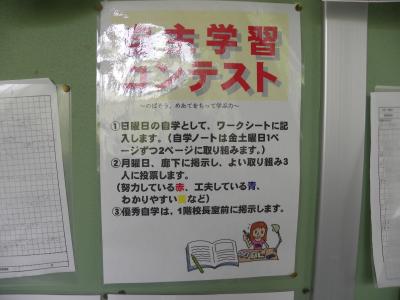 自主学習
コンテスト
～のばそう、めあてをもって学ぶ力～
①日曜日の自学として、ワークシートに記
入します。（自学ノートは金土曜日1ペ
ージずつ2ページに取り組みます。）
②月曜日、廊下に掲示し、よい取り組み3
人に投票します。
（努力している赤、工夫している青、
わかりやすい黄など）
③優秀自学は、1階校長室前に掲示します。